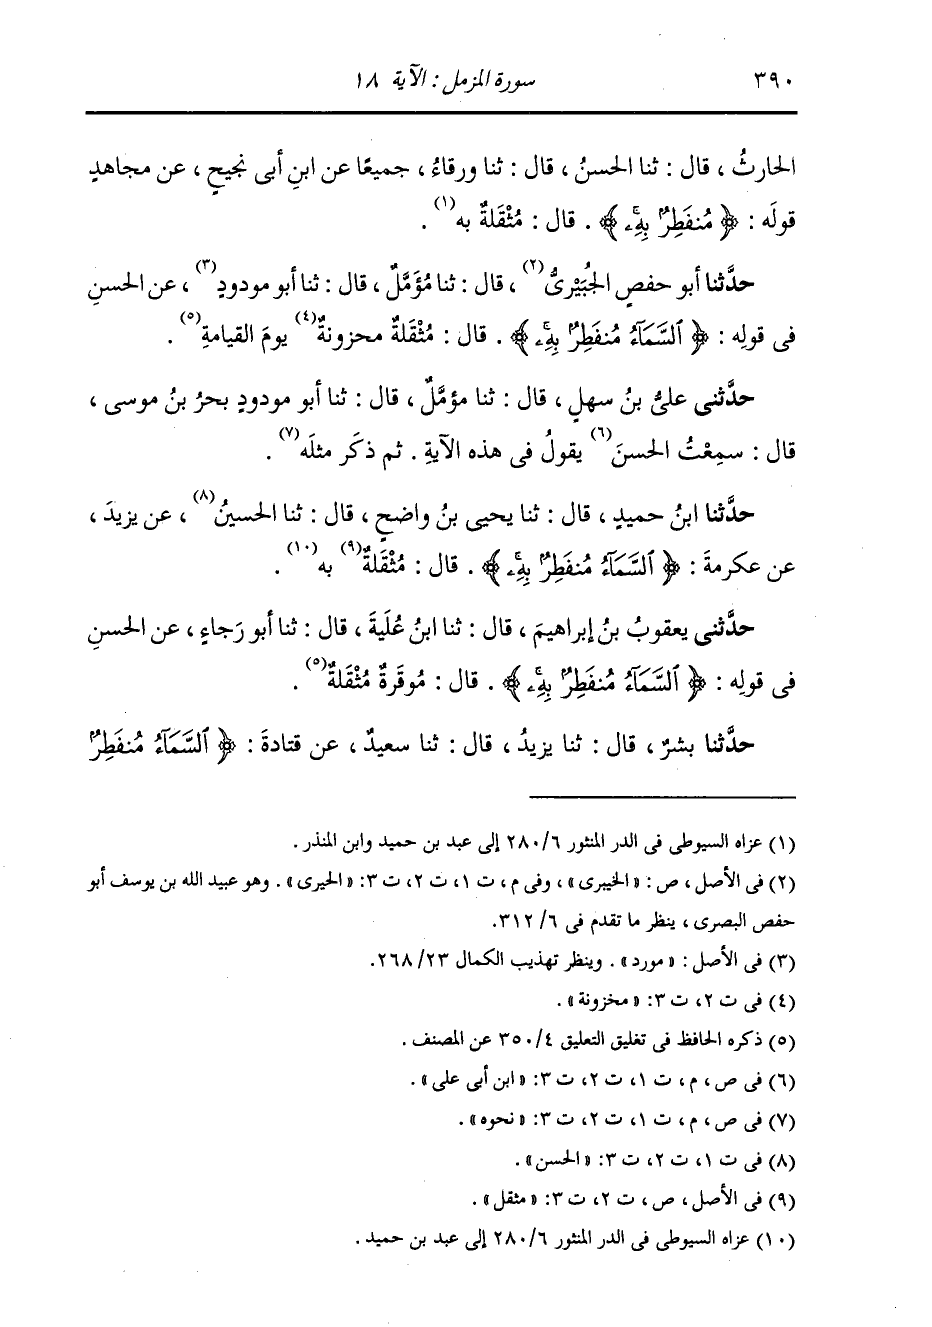 ٣٩٠ سورة المزمل : الآية ١٨
الحارثُ ، قال : ثنا الحسنُ ، قال : ثنا ورقاءُ ، جميعًا عن ابنِ أبى نجيحٍ ، عن مجاهدٍ
قولَه : ﴿ مُنفَطِرٌۢ بِهِۦۚ ﴾ . قال : مُثْقَلةٌ به(١) .
حدَّثنا أبو حفصٍ الجُبَيْرىُّ(٢) ، قال : ثنا مُؤَمَّلٌ ، قال : ثنا أبو مودودٍ(٣) ، عن الحسنِ
فى قولِه : ﴿ ٱلسَّمَآءُ مُنفَطِرٌۢ بِهِۦۚ ﴾ . قال : مُثْقَلةٌ محزونةٌ(٤) يومَ القيامةِ(٥) .
حدَّثنى علىُّ بنُ سهلٍ ، قال : ثنا مؤمَّلٌ ، قال : ثنا أبو مودودٍ بحرُ بنُ موسى ،
قال : سمِعْتُ الحسنَ(٦) يقولُ فى هذه الآيةِ . ثم ذكَر مثلَه(٧) .
حدَّثنا ابنُ حميدٍ ، قال : ثنا يحيى بنُ واضحٍ ، قال : ثنا الحسينُ(٨) ، عن يزيدَ ،
عن عكرمةَ : ﴿ ٱلسَّمَآءُ مُنفَطِرٌۢ بِهِۦۚ ﴾ . قال : مُثْقَلةٌ(٩) به(١٠) .
حدَّثنى يعقوبُ بنُ إبراهيمَ ، قال : ثنا ابنُ عُلَيةَ ، قال : ثنا أبو رَجاءٍ ، عن الحسنِ
فى قولِه : ﴿ ٱلسَّمَآءُ مُنفَطِرٌۢ بِهِۦۚ ﴾ . قال : مُوقَرةٌ مُثْقَلةٌ(٥) .
حدَّثنا بشرٌ ، قال : ثنا يزيدُ ، قال : ثنا سعيدٌ ، عن قتادةَ : ﴿ ٱلسَّمَآءُ مُنفَطِرٌۢ
(١) عزاه السيوطى فى الدر المنثور ٢٨٠/٦ إلى عبد بن حميد وابن المنذر .
(٢) فى الأصل ، ص : «الخيبرى» ، وفى م ، ت ١، ت ٢، ت ٣: «الحيرى» . وهو عبيد الله بن يوسف أبو
حفص البصرى ، ينظر ما تقدم فى ٣١٢/٦.
(٣) فى الأصل : «مورد» . وينظر تهذيب الكمال ٢٦٨/٢٣.
(٤) فى ت ٢، ت ٣: «مخزونة» .
(٥) ذكره الحافظ فى تغليق التعليق ٣٥٠/٤ عن المصنف .
(٦) فى ص ، م ، ت ١، ت ٢، ت ٣: «ابن أبى على» .
(٧) فى ص ، م ، ت ١، ت ٢، ت ٣: «نحوه» .
(٨) فى ت ١، ت ٢، ت ٣: «الحسن» .
(٩) فى الأصل ، ص ، ت ٢، ت ٣: «مثقل» .
(١٠) عزاه السيوطى فى الدر المنثور ٢٨٠/٦ إلى عبد بن حميد .